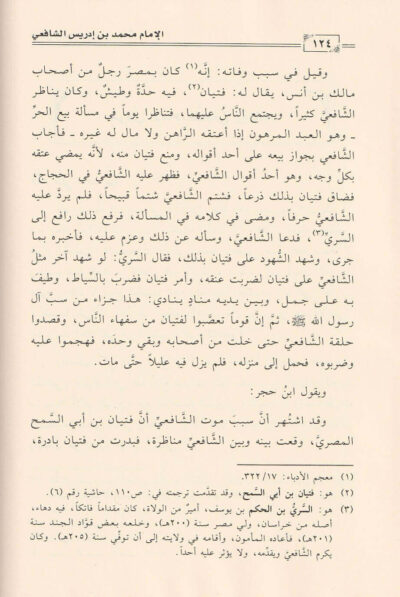 ١٢٤ الإمام محمد بن إدريس الشافعي
وقيل في سبب وفاته: إنَّه(١) كان بمصرَ رجلٌ من أصحاب
مالك بن أنس، يقال له: فتيان(٢)، فيه حدَّةٌ وطيشٌ، وكان يناظر
الشَّافعيَّ كثيراً، ويجتمع النَّاسُ عليهما، فتناظرا يوماً في مسألة بيع الحرِّ
ـ وهو العبد المرهون إذا أعتقه الرَّاهن ولا مال له غيره ـ فأجاب
الشَّافعي بجواز بيعه على أحد أقواله، ومنع فتيان منه، لأنَّه يمضي عتقه
بكلِّ وجه، وهو أحدُ أقوال الشَّافعيِّ، فظهر عليه الشَّافعيُّ في الحجاج،
فضاق فتيان بذلك ذرعاً، فشتم الشَّافعيَّ شتماً قبيحاً، فلم يردَّ عليه
الشَّافعيُّ حرفاً، ومضى في كلامه في المسألة، فرفع ذلك رافع إلى
السريِّ(٣)، فدعا الشَّافعيَّ، وسأله عن ذلك وعزم عليه، فأخبره بما
جرى، وشهد الشُّهود على فتيان بذلك، فقال السريُّ: لو شهد آخر مثلُ
الشَّافعيِّ على فتيان لضربت عنقه، وأمر فتيان فضربَ بالسِّياط، وطيفَ
به على جمل، وبين يديه منادٍ ينادي: هذا جزاء من سبَّ آل
رسول الله ﷺ، ثمَّ إنَّ قوماً تعصَّبوا لفتيان من سفهاء النَّاس، وقصدوا
حلقة الشَّافعيِّ حتى خلت من أصحابه وبقي وحدَه، فهجموا عليه
وضربوه، فحمل إلى منزله، فلم يزل فيه عليلاً حتَّى مات.
ويقول ابنُ حجر:
وقد اشتُهر أنَّ سببَ موت الشَّافعيِّ أنَّ فتيان بن أبي السَّمح
المصريَّ، وقعت بينه وبين الشَّافعيِّ مناظرة، فبدرت من فتيان بادرة،
(١) معجم الأدباء: ٣٢٢/١٧.
(٢) هو: فتيان بن أبي السَّمح، وقد تقدَّمت ترجمته في: ص١١٠، حاشية رقم (٦).
(٣) هو: السريُّ بن الحكم بن يوسف، أميرٌ من الولاة، كان مقداماً فاتكاً، فيه دهاء،
أصله من خراسان، ولي مصر سنة (٢٠٠هـ)، وخلعه بعض قوَّاد الجند سنة
(٢٠١هـ)، فأعاده المأمون، وأقامه في ولايته إلى أن توفِّي سنة (٢٠٥هـ). وكان
يكرم الشَّافعيَّ ويقدِّمه، ولا يؤثر عليه أحداً.